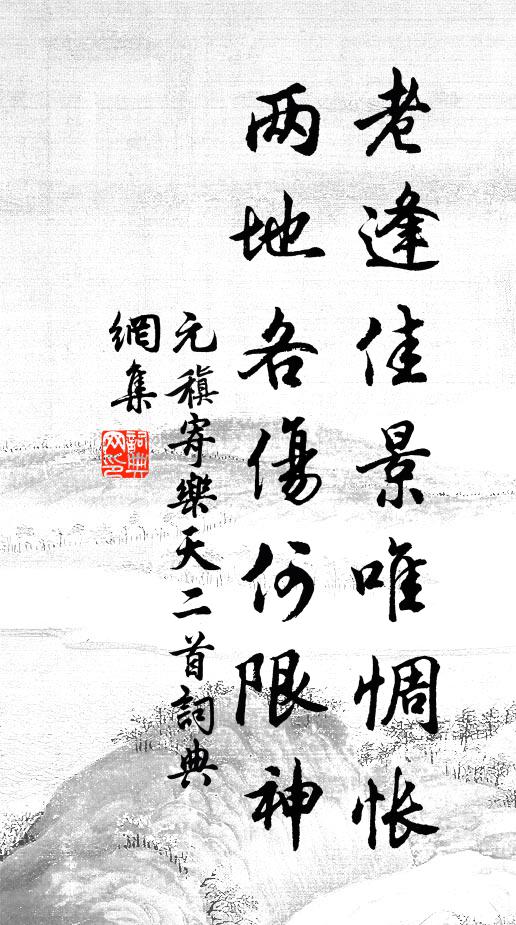 老逢佳景唯惆怅
两地各傷何限神
元稹寄樂天二首詞典
網集
詞典网印